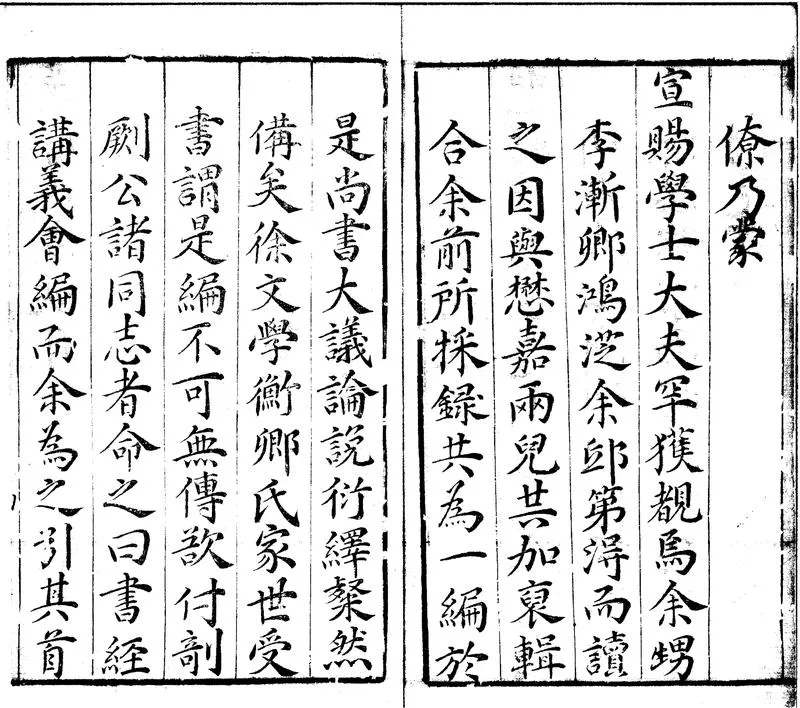 僚乃蒙
宣賜學士大夫罕獲覩焉余甥
李漸卿鴻淽余邸第淂而讀
之因與懋嘉兩兒共加裒輯
合余前所採録共為一編於
是尚書大議論說衍繹粲然
備矣徐文學衡卿氏家世受
書謂是編不可無傳欲付剞
劂公諸同志者命之曰書經
講義會編而余為之引其首